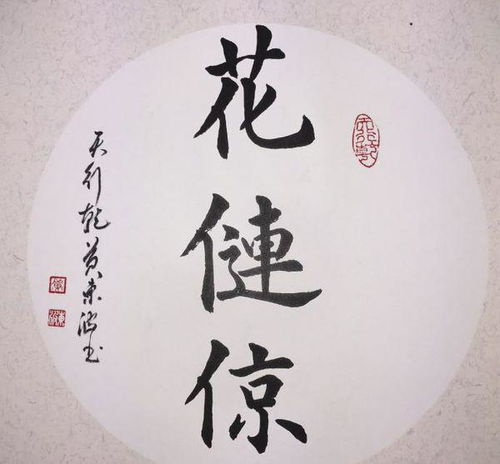 花
僆
倞
天行乾黄东海书